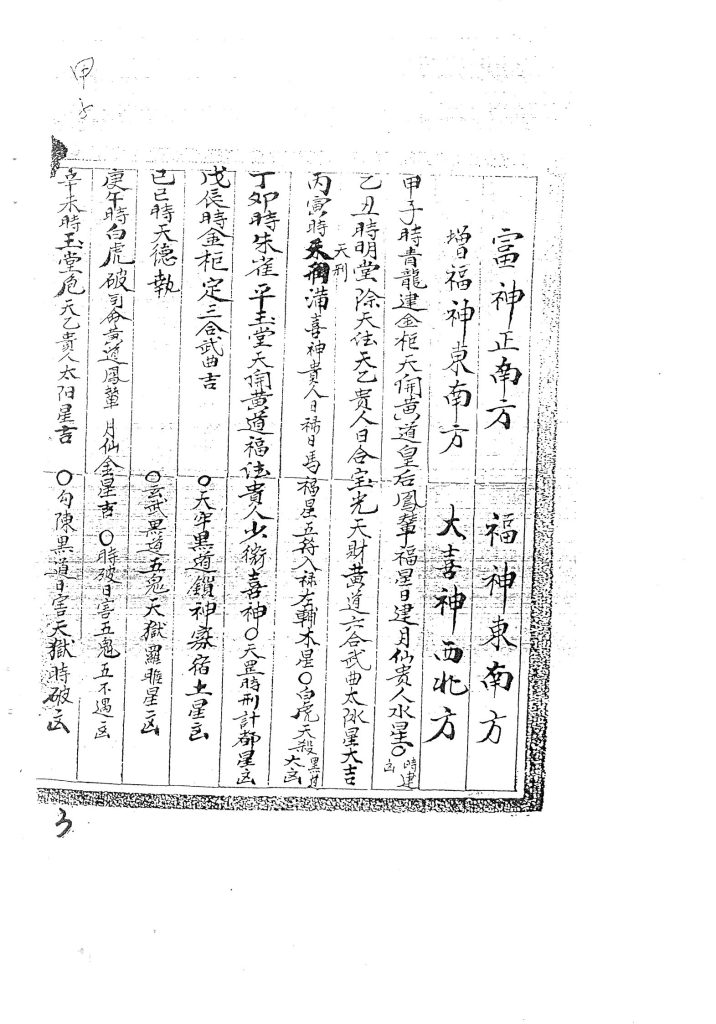 甲子
富神正南方 福神東南方
增福神東南方 大喜神西北方
甲子時青龍建金柜天開黃道皇后鳳輦福星日建月仙貴人水星〇時建凶
乙丑時明堂除天法天乙貴人日合宝光天財黃道六合武曲太阴星大吉
丙寅時天刑滿喜神貴人日祿日馬福星五符入祿左輔木星〇白虎天殺黑道大凶
丁卯時朱雀平玉堂天開黃道福法貴人少微喜神〇天罡時刑計都星凶
戊辰時金柜定三合武曲吉 〇天牢黑道鎖神寡宿土星凶
己巳時天德執 〇玄武黑道五鬼天獄羅睺星凶
庚午時白虎破司命黃道鳳輦月仙金星吉〇時破日害五鬼五不遇凶
辛未時玉堂危天乙貴人太阳星吉 〇勾陳黑道日害天獄時破凶
3